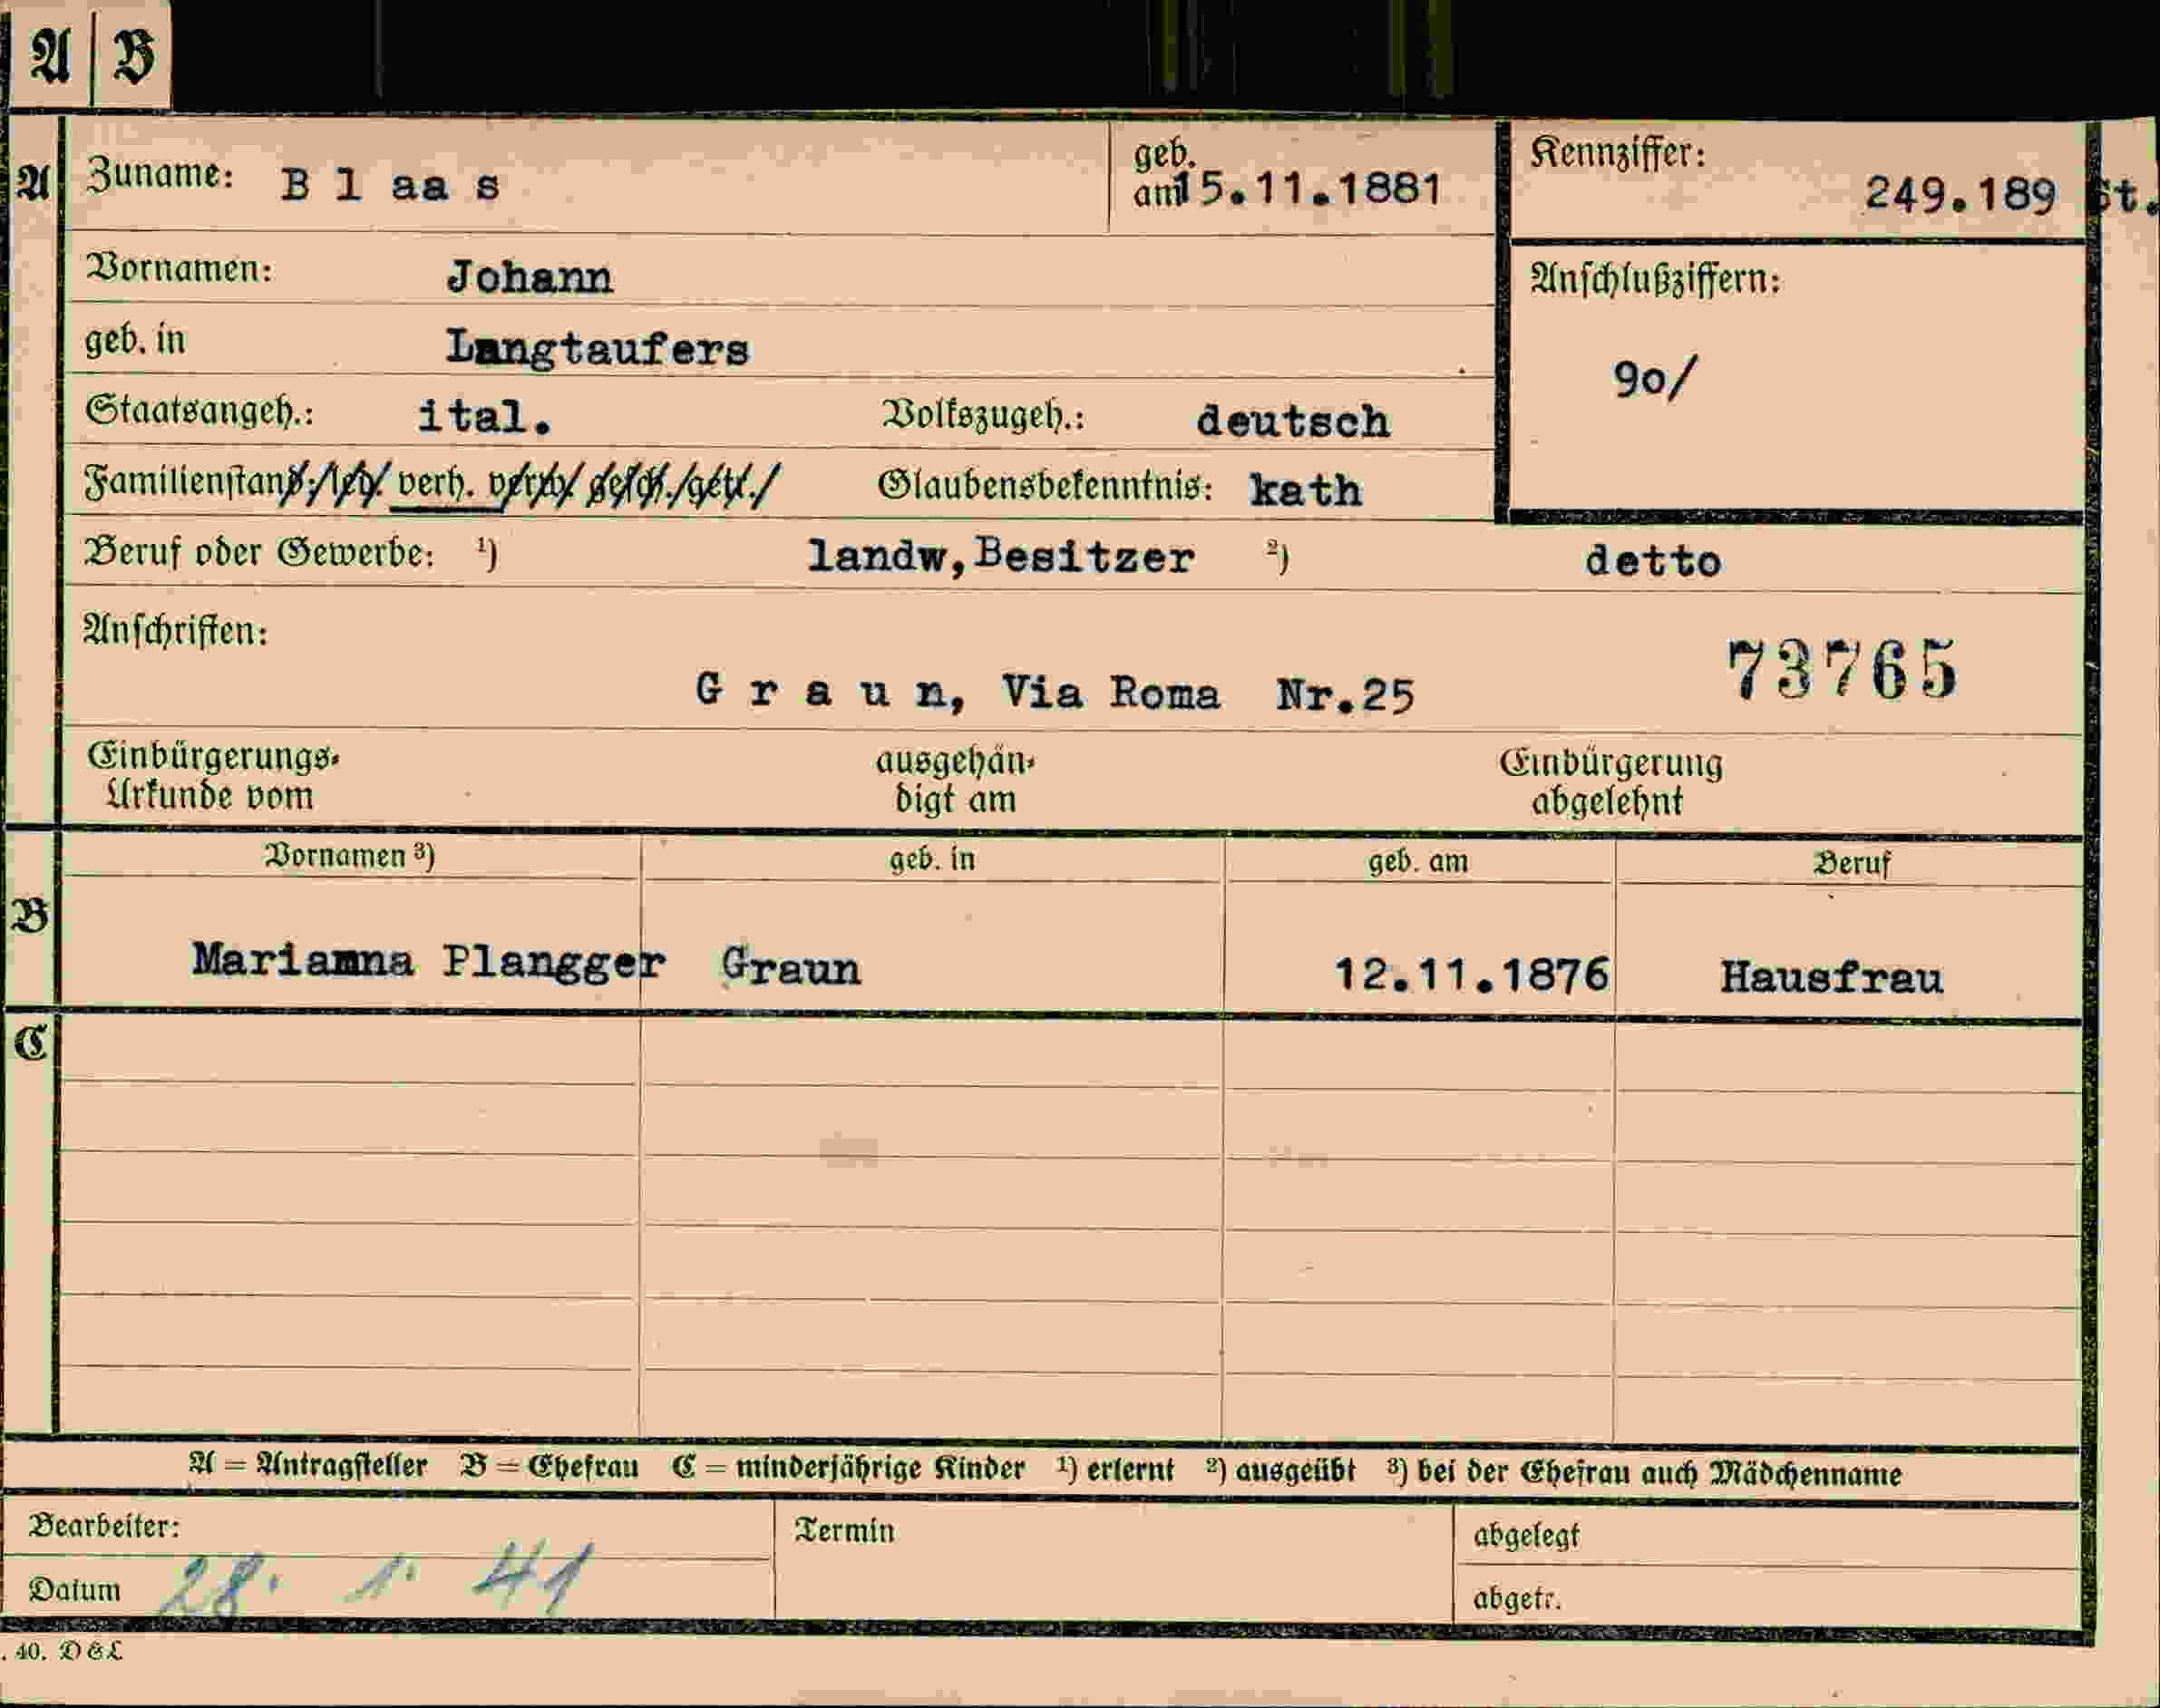 A B
A Zuname: B l aa s geb. am 15.11.1881 Kennziffer: 249.189 St.
Vornamen: Johann
geb. in Langtaufers
Anschlußziffern: 90/
Staatsangeh.: ital. Volkszugeh.: deutsch
Familienstand: led. verh. verw. gesch. getr. Glaubensbekenntnis: kath
Beruf oder Gewerbe: ¹) landw,Besitzer ²) detto
Anschriften:
G r a u n, Via Roma Nr.25 73765
Einbürgerungs- ausgehän- Einbürgerung
Urkunde vom digt am abgelehnt
Vornamen ³) geb. in geb. am Beruf
B
Marianna Plangger Graun 12.11.1876 Hausfrau
C
A = Antragsteller B = Ehefrau C = minderjährige Kinder ¹) erlernt ²) ausgeübt ³) bei der Ehefrau auch Mädchenname
Bearbeiter: Termin abgelegt
Datum 28. 1. 41 abgetr.
. 40. D&L